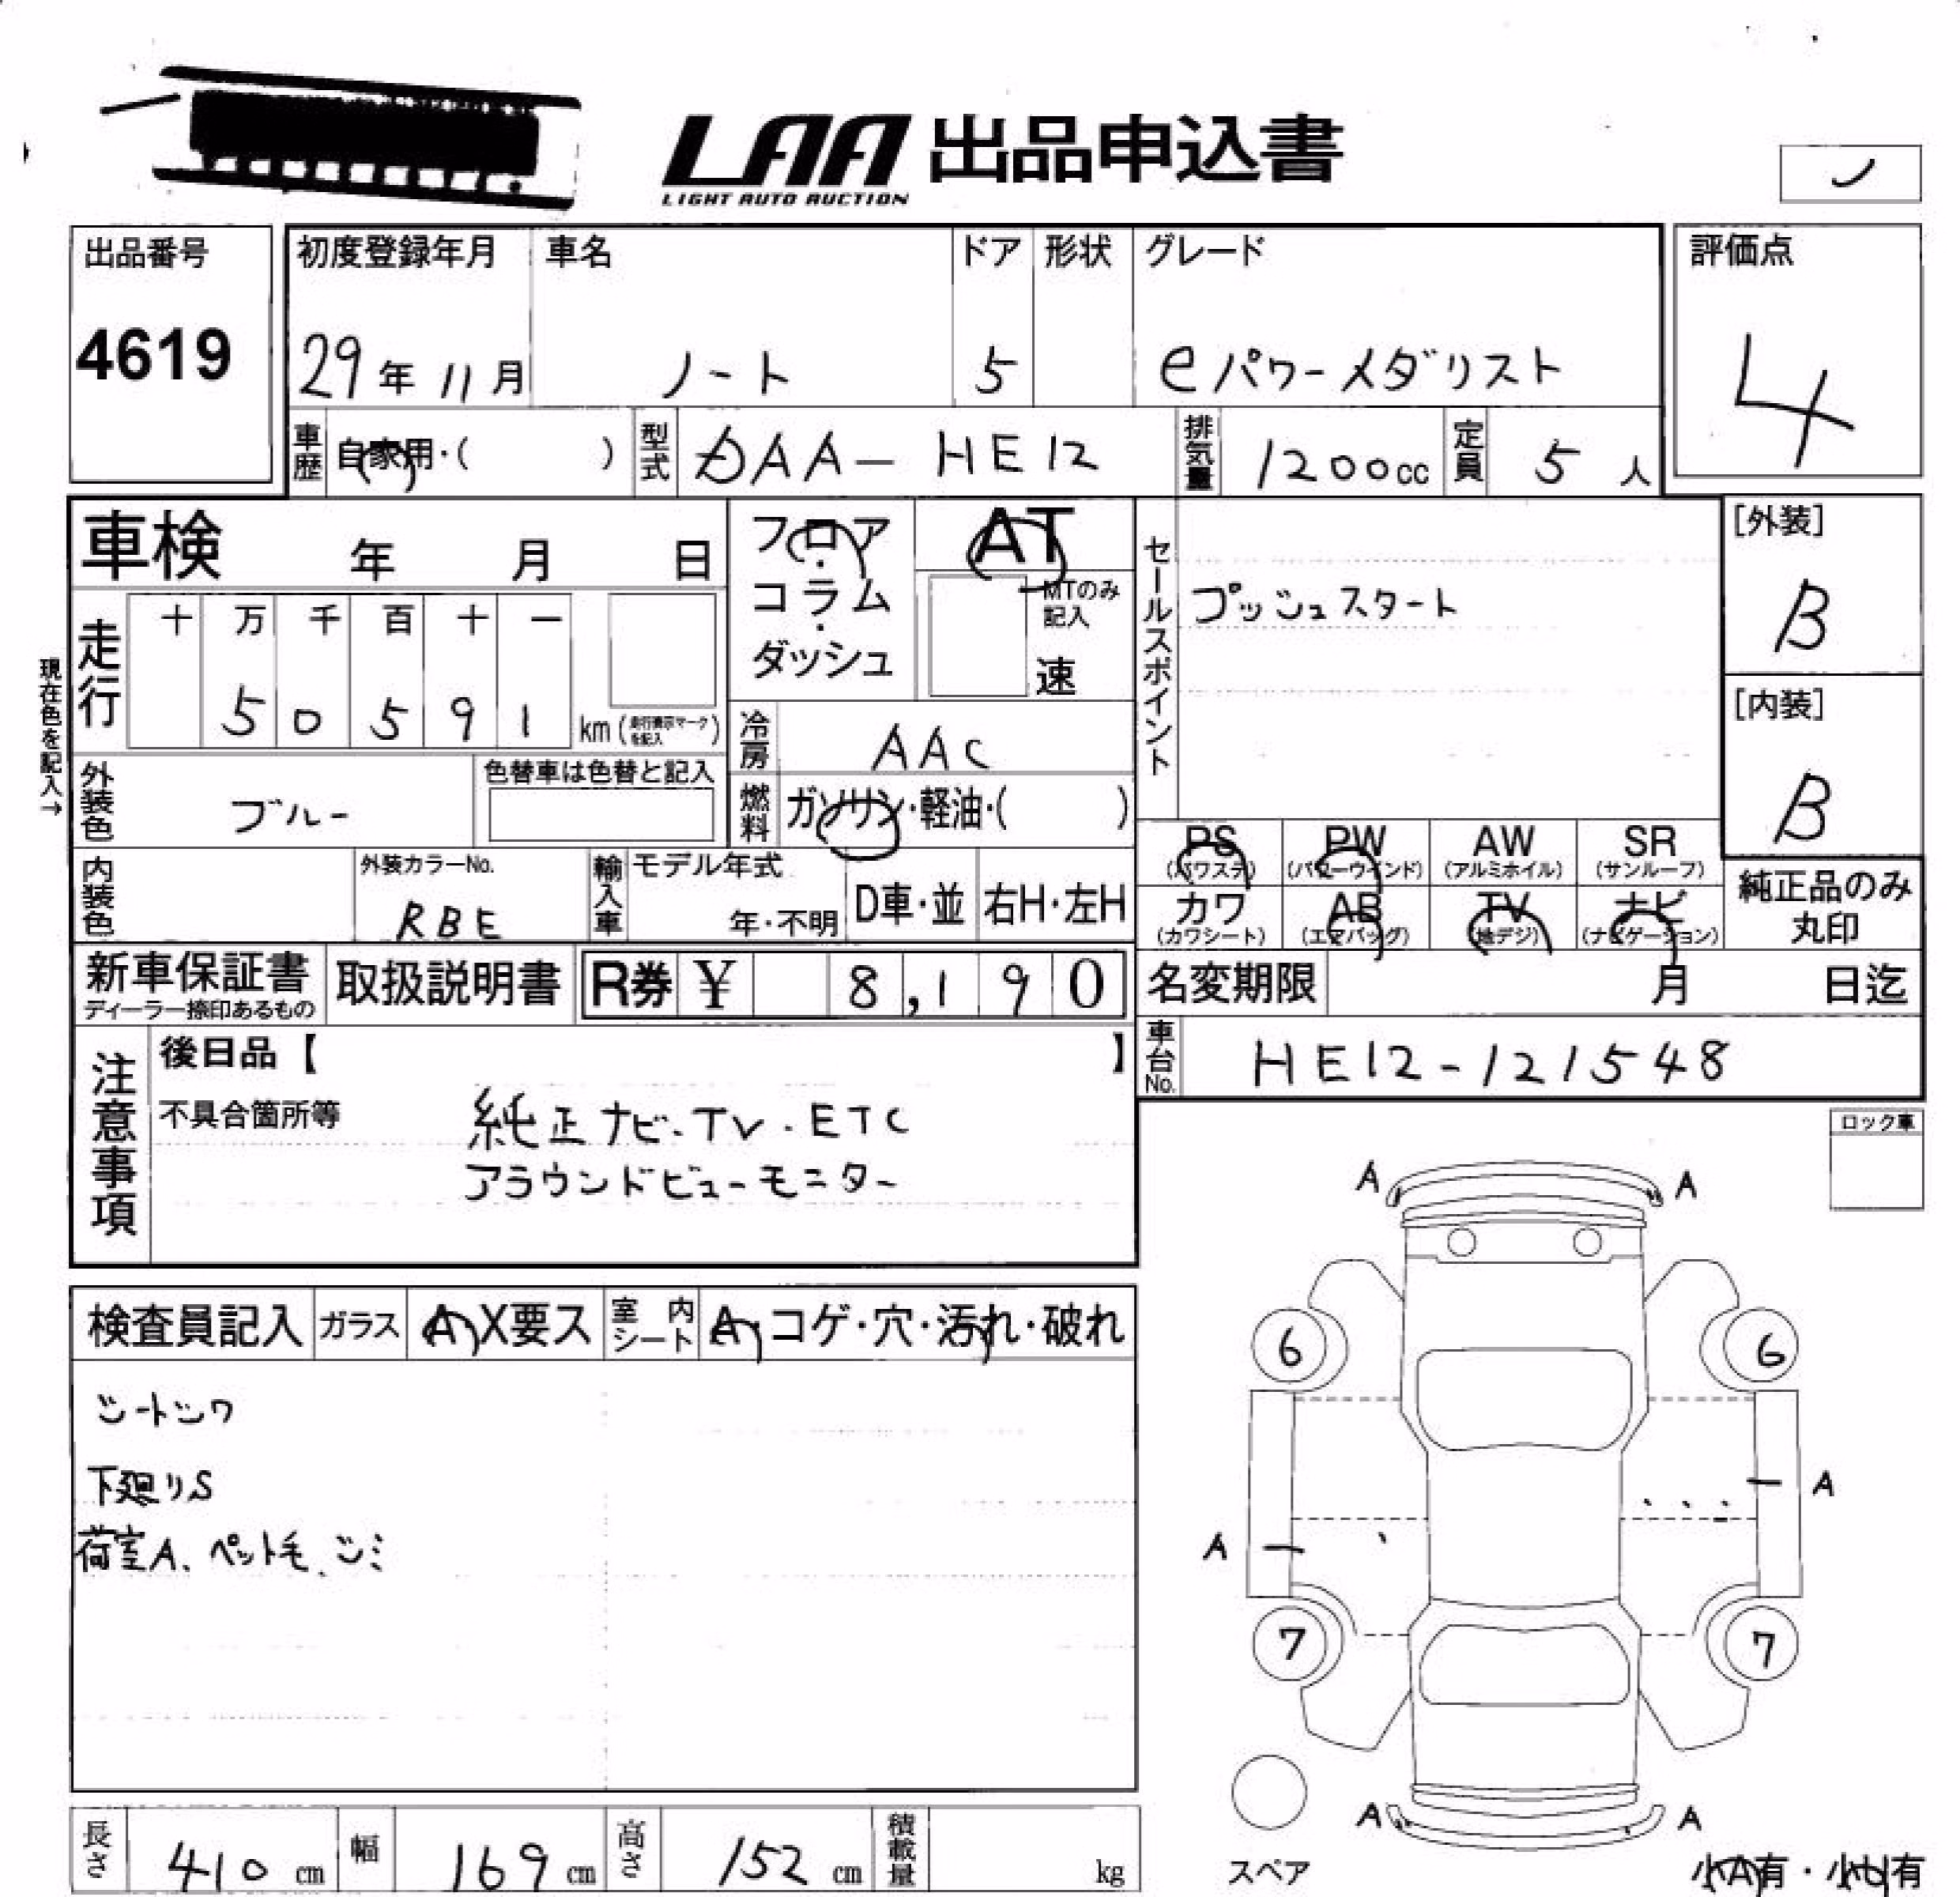 LAA 出品申込書
LIGHT AUTO AUCTION
出品番号
4619
初度登録年月
29年11月
車名
ノート
ドア
5
形状
グレード
eパワーメダリスト
評価点
4
車歴 自家用・( )
型式 DAA-HE12
排気量 1200cc
定員 5人
車検 年 月 日
フロア・コラム・ダッシュ
AT
MTのみ記入
速
セールスポイント
プッシュスタート
[外装]
B
[内装]
B
走行 十 万 千 百 十 一
5 0 5 9 1 km (走行表示マークを記入)
現在色を記入→
冷房 AAC
外装色 ブルー
色替車は色替と記入
燃料 ガソリン・軽油・( )
内装色
外装カラーNo.
RBE
輸入車 モデル年式
年・不明
D車・並
右H・左H
PS (パワステ) PW (パワーウインド) AW (アルミホイル) SR (サンルーフ)
カワ (カワシート) AB (エアバッグ) TV (地デジ) ナビ (ナビゲーション)
純正品のみ丸印
新車保証書
ディーラー捺印あるもの
取扱説明書
R券 ¥ 8,190
名変期限 月 日迄
車台No. HE12-121548
注意事項
後日品【 】
不具合箇所等
純正ナビ・TV・ETC
アラウンドビューモニター
ロック車
検査員記入 ガラス A・X要ス 室内シート A・コゲ・穴・汚れ・破れ
シートシワ
下廻りS
荷室A、ペット毛、シミ
A A
6 6
A
A
7 7
A A
スペア
小A有・小U有
長さ 410cm 幅 169cm 高さ 152cm 積載量 kg